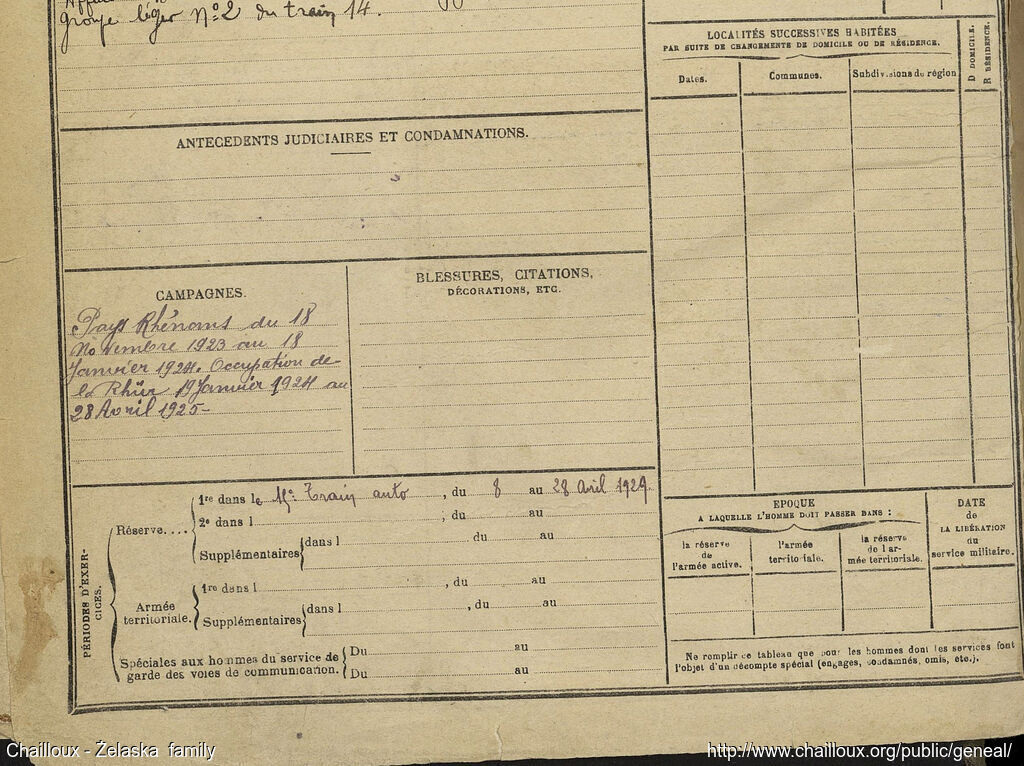 groupe léger No 2 du train 14.
ANTECEDENTS JUDICIAIRES ET CONDAMNATIONS.
CAMPAGNES.
Pays Rhénans du 18
Novembre 1923 au 18
Janvier 1924. Occupation de
la Rhür 19 Janvier 1924 au
28 Avril 1925-
BLESSURES, CITATIONS,
DÉCORATIONS, ETC.
PÉRIODES D'EXER-
CICES.
Réserve....
1re dans le Train auto, du 8 au 28 Avril 1929.
2e dans l , du au
Supplémentaires dans l , du au
Armée
territoriale.
1re dans l , du au
Supplémentaires dans l , du au
Spéciales aux hommes du service de
garde des voies de communication.
Du au
Du au
LOCALITÉS SUCCESSIVES HABITÉES
PAR SUITE DE CHANGEMENTS DE DOMICILE OU DE RÉSIDENCE.
Dates.
Communes.
Subdivisions de région
D DOMICILE.
R RÉSIDENCE.
EPOQUE
A LAQUELLE L'HOMME DOIT PASSER DANS :
la réserve
de
l'armée active.
l'armée
territoriale.
la réserve
de l'ar-
mée territoriale.
DATE
de
LA LIBÉRATION
du
service militaire.
Ne remplir ce tableau que pour les hommes dont les services font
l'objet d'un décompte spécial (engagés, condamnés, omis, etc.).
Chailloux - Żelaska family
http://www.chailloux.org/public/geneal/